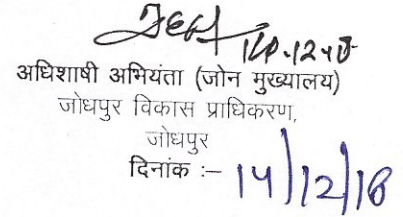 अधिशाषी अभियंता (जोन मुख्यालय)
जोधपुर विकास प्राधिकरण,
जोधपुर
दिनांक :– 14/12/18